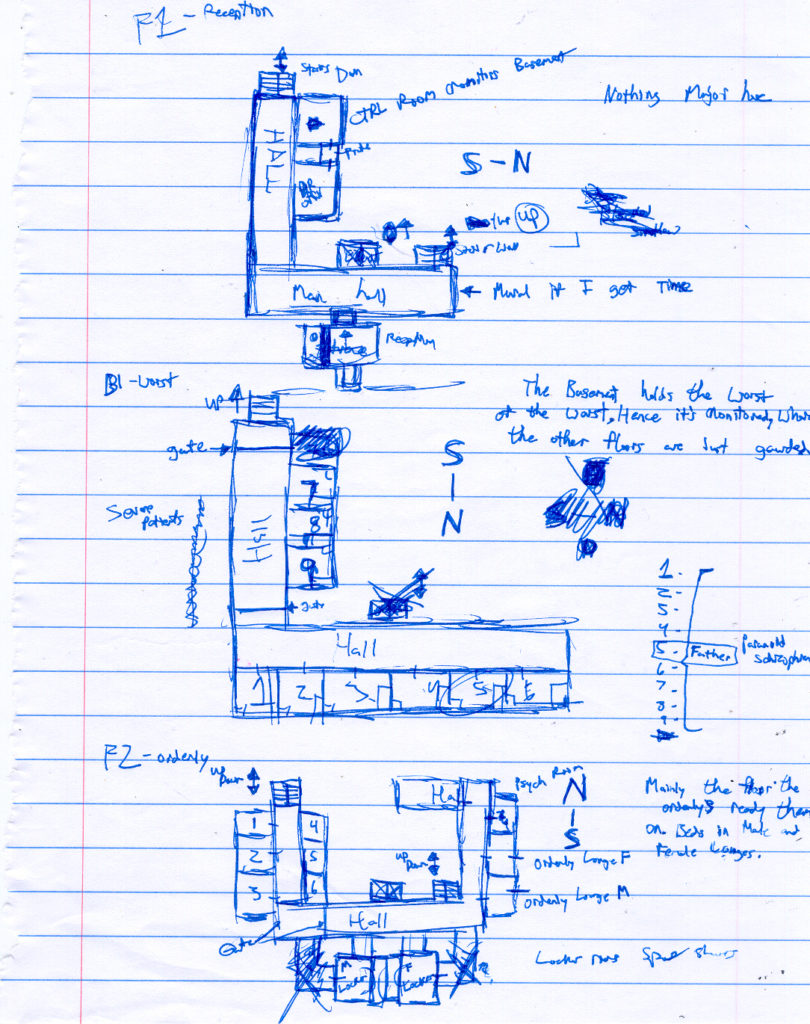 F1 - Reception
Stairs Down
CTRL ROOM monitors Basement
Nothing Major here
HALL
S - N
UP
Main hall
Mural if I get Time
Reception
B1 - worst
UP
The Basement holds the worst
of the worst, Hence it's monitored, where
the other floors are just guarded
gate
S
N
7
8
9
Severe
patients
Hall
gate
Hall
1 2 3 4 5 6
1 -
2 -
3 -
4 -
5 - Father Paranoid
6 -
7 -
8 -
9 -
F2 - orderly
UP
Down
Hall
Psych Room
N
S
Mainly the floor the
orderlys ready them
on Beds in Male and
Female Lounges.
1 4
2 5
3 6
UP
Down
Orderly Lounge F
Orderly Lounge M
Hall
Gate
M
Locker
F
Locker